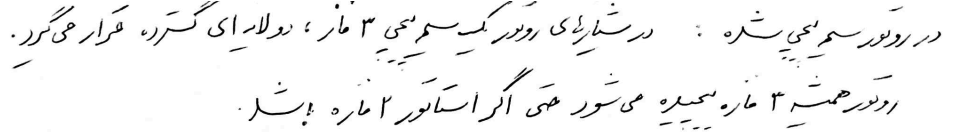 در روتور سیم پیچی شده : در شیارهای روتور یک سیم پیچی ۳ فاز ، دو لایه ای گسترده قرار می گیرد .
روتور همیشه ۳ فازه پیچیده می شود حتی اگر استاتور ۲ فازه باشد .